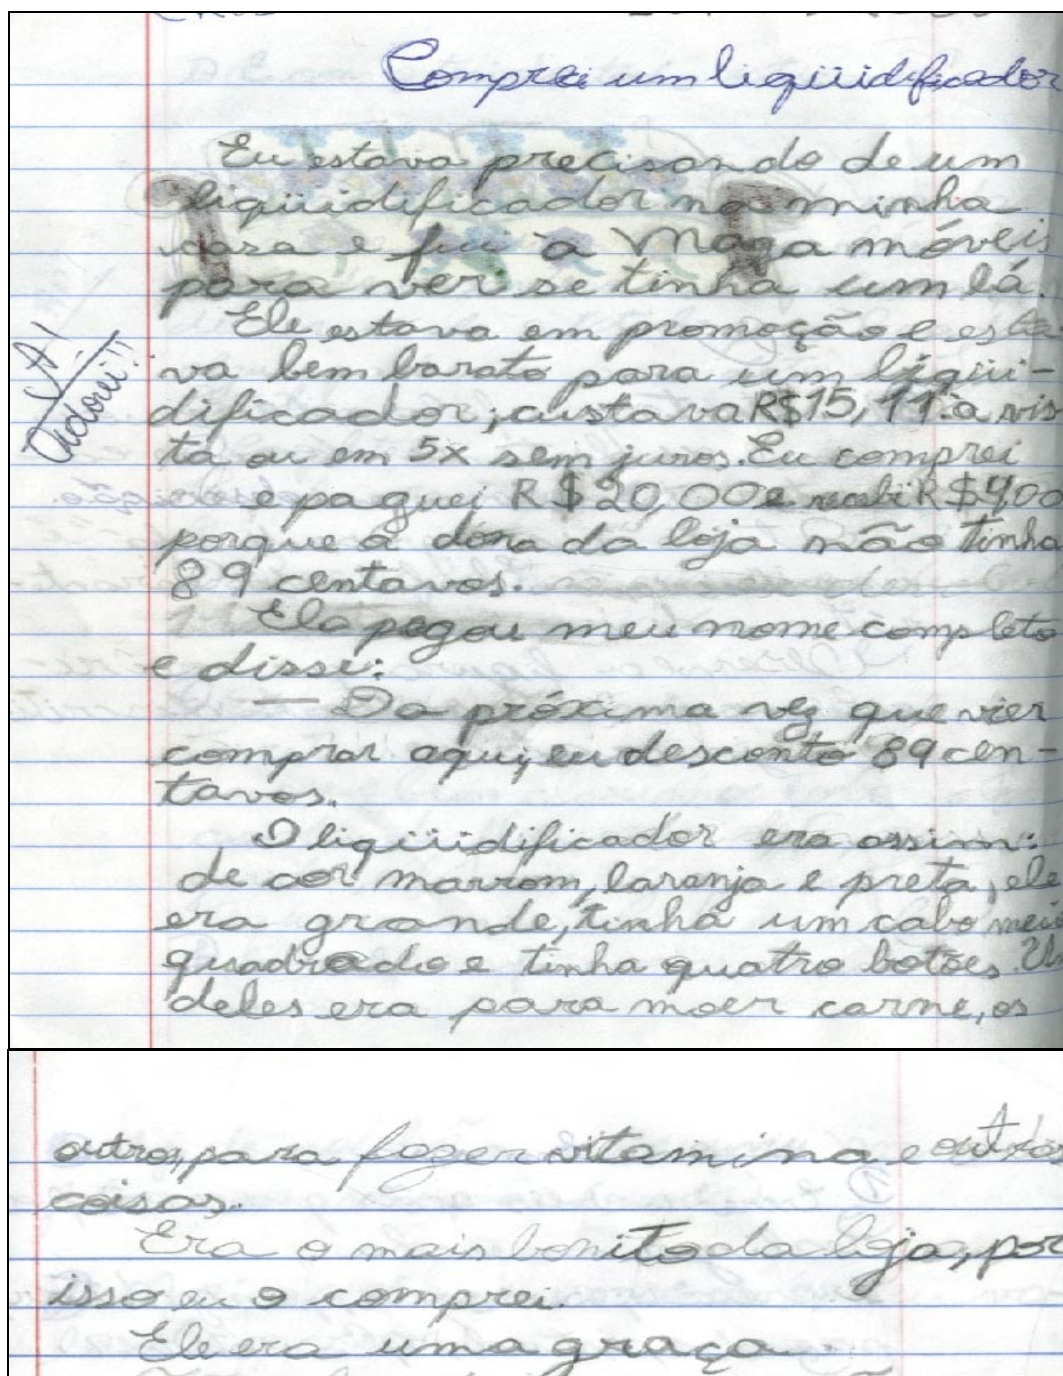 Comprei um liqüidificador
Eu estava precisando de um
liqüidificador na minha
casa e fui a Maga móveis
para ver se tinha um lá.
Ele estava em promoção e esta
va bem barato para um liqüi-
dificador; custava R$15,11 à vis
ta ou em 5x sem juros. Eu comprei
e paguei R$20,00 e recebi R$4,00
porque a dona da loja não tinha
89 centavos.
Ela pegou meu nome completo
e disse:
— Da próxima vez que vier
comprar aqui, eu desconto 89 cen-
tavos.
O liqüidificador era assim:
de cor marrom, laranja e preta, ele
era grande, tinha um cabo meio
quadrado e tinha quatro botões. Um
deles era para moer carne, os
outros, para fazer vitamina e outras
coisas.
Era o mais bonito da loja, por
isso eu o comprei.
Ele era uma graça.
A!
Adorei!!